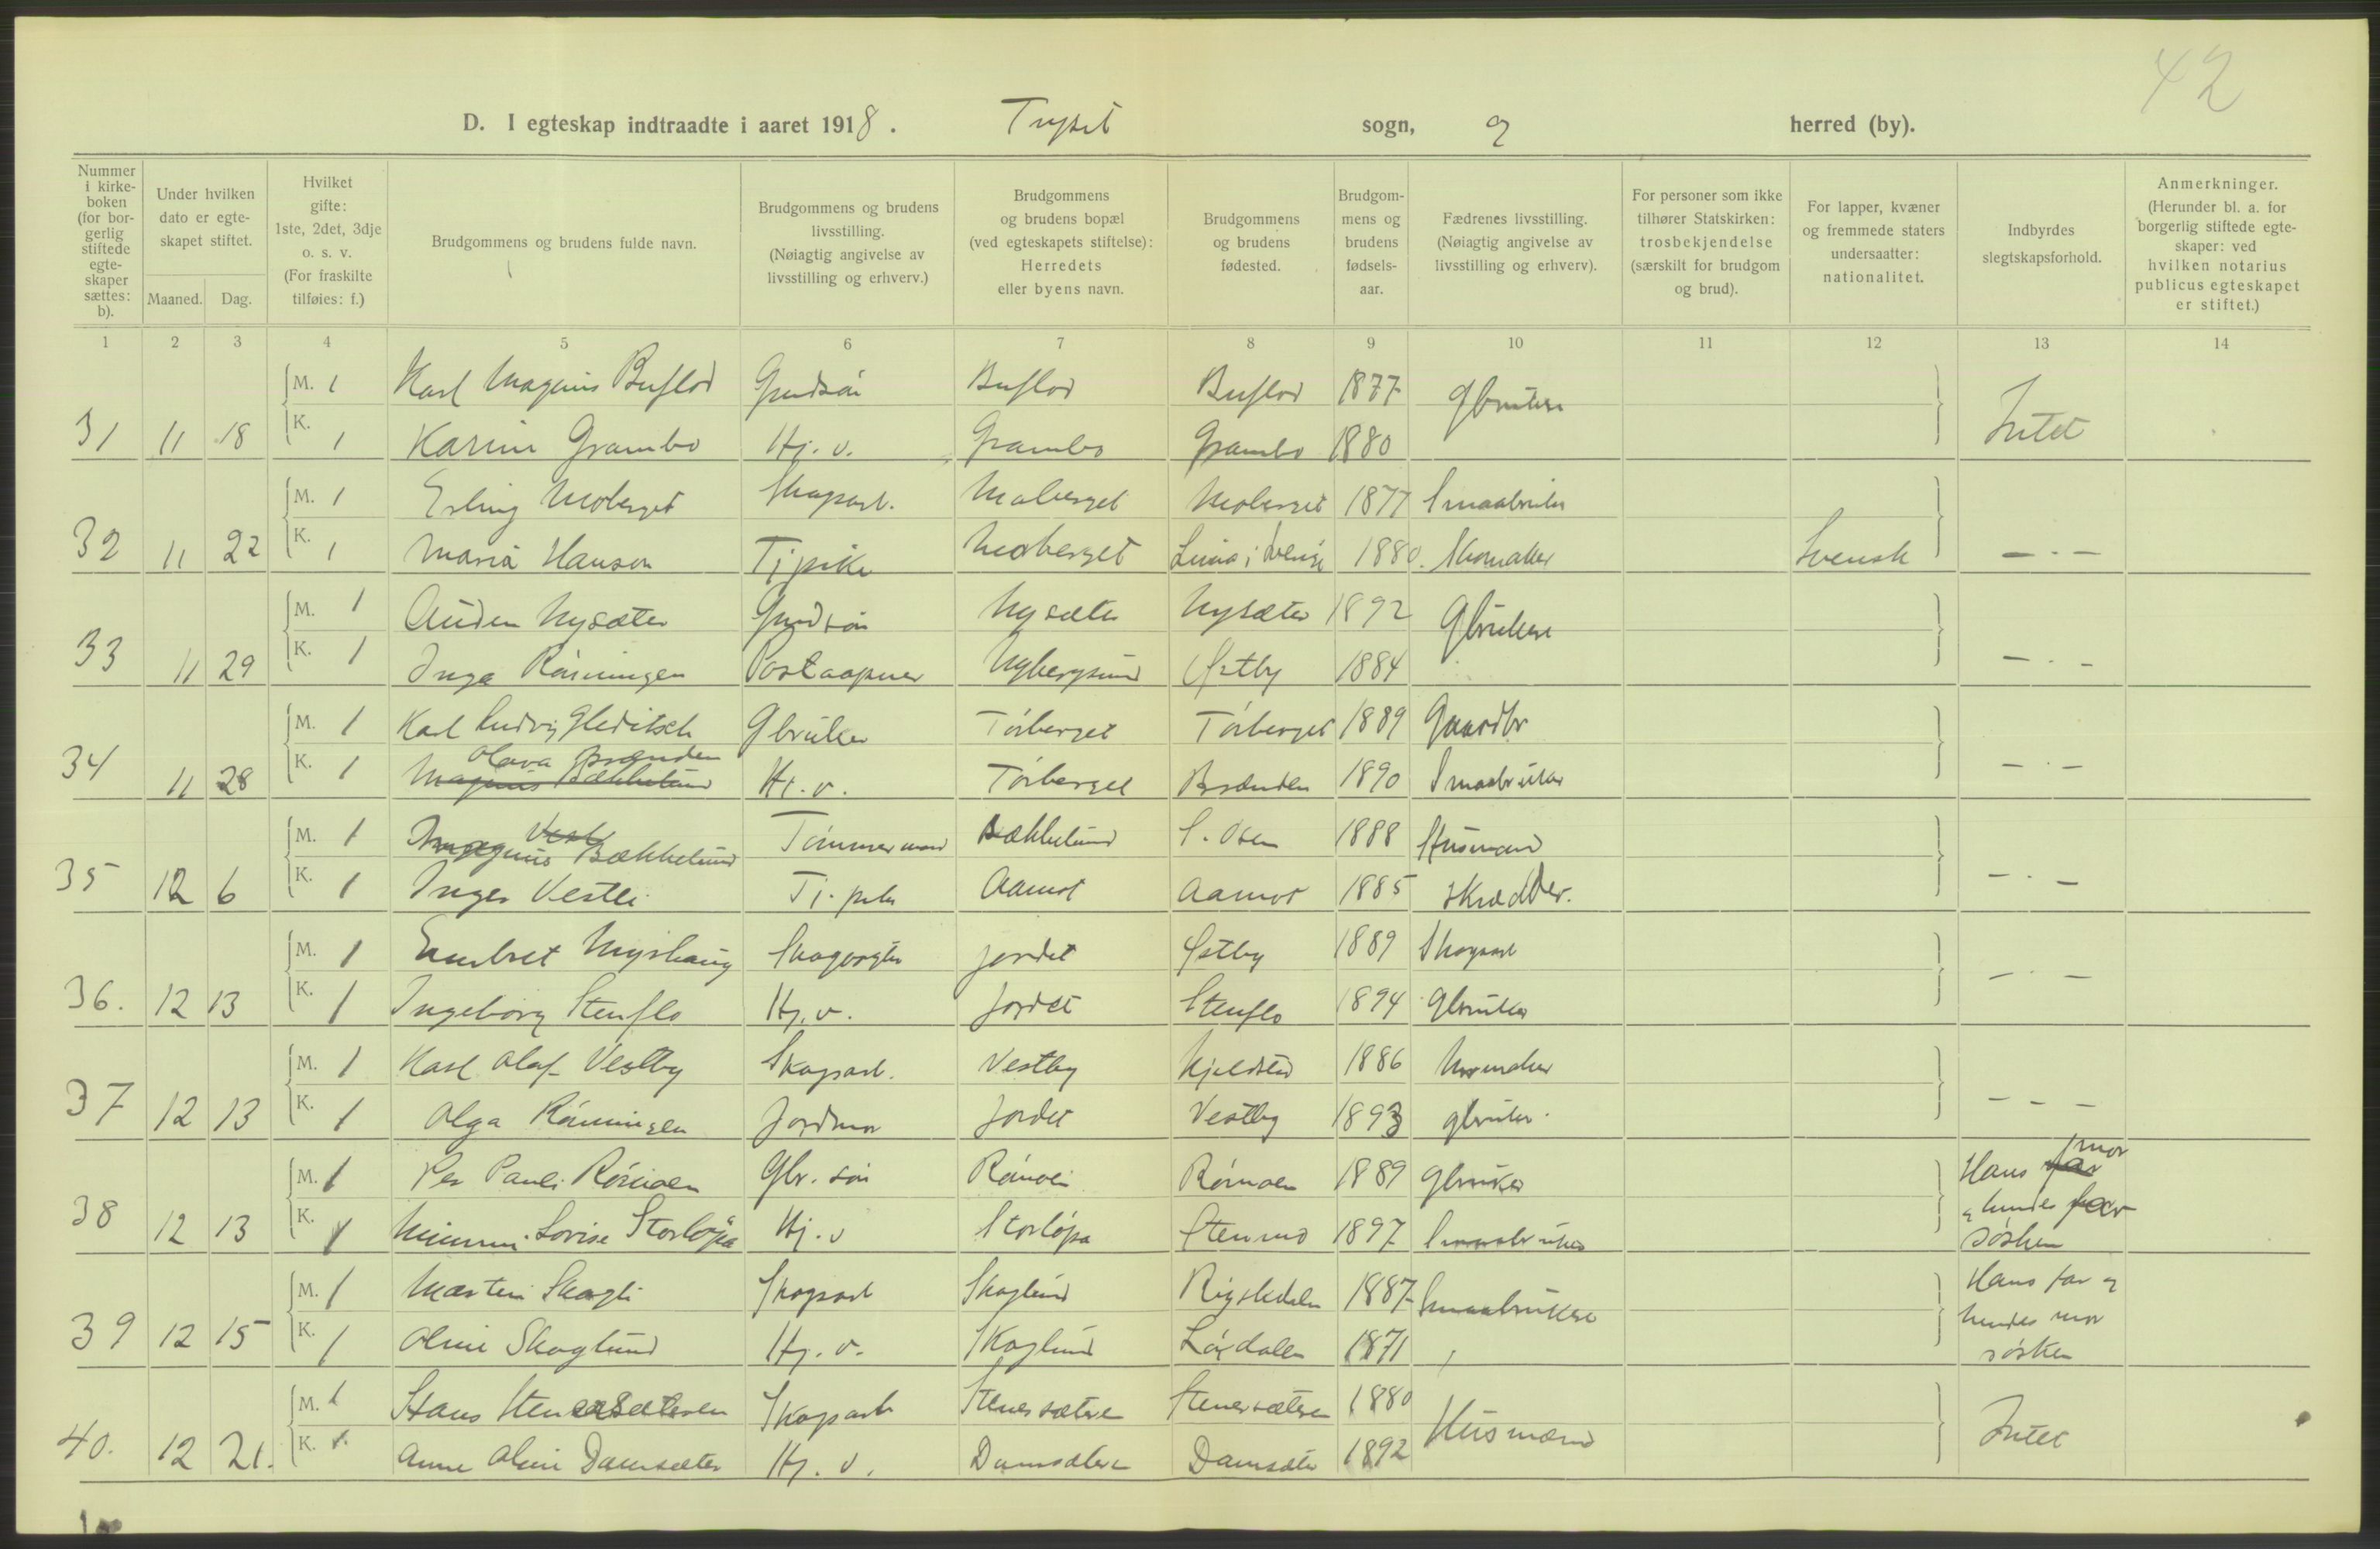 42
D. I egteskap indtraadte i aaret 1918. Trysil sogn, og herred (by).
Nummer i kirkeboken (for borgerlig stiftede egteskaper sættes: b).
Under hvilken dato er egteskapet stiftet.
Maaned. Dag.
Hvilket gifte: 1ste, 2det, 3dje o. s. v. (For fraskilte tilføies: f.)
Brudgommens og brudens fulde navn.
Brudgommens og brudens livsstilling. (Nøiagtig angivelse av livsstilling og erhverv.)
Brudgommens og brudens bopæl (ved egteskapets stiftelse): Herredets eller byens navn.
Brudgommens og brudens fødested.
Brudgommens og brudens fødselsaar.
Fædrenes livsstilling. (Nøiagtig angivelse av livsstilling og erhverv).
For personer som ikke tilhører Statskirken: trosbekjendelse (særskilt for brudgom og brud).
For lapper, kvæner og fremmede staters undersaatter: nationalitet.
Indbyrdes slegtskapsforhold.
Anmerkninger. (Herunder bl. a. for borgerlig stiftede egteskaper: ved hvilken notarius publicus egteskapet er stiftet.)
1 2 3 4 5 6 7 8 9 10 11 12 13 14
M. 1 Karl Magnus Buflod Grndsøn Buflod Buflod 1877 Gbrukere
31 11 18 K. 1 Karin Grambo Hj. v. Grambo Grambo 1880 Intet
M. 1 Erling Moberget Skogarb. Moberget Moberget 1877 Smaabruker
32 11 22 K. 1 Maria Hanson Tj pike Moberget Lima i Sverige 1880. Skomaker Svensk — . —
M. 1 Auden Nysæter Grndsøn Nysæter Nysæter 1892 Gbrukere
33 11 29 K. 1 Inga Rønningen Postaapner Nybergsund Østby 1884 — . —
M. 1 Karl Ludvig Gleditsch Gbruker Tørberget Tørberget 1889 Gaardbr
34 11 28 K. 1 Magnus Bækkelund Olava Brænden Hj. v. Tørberget Brænden 1890 Smaabruker — . —
M. 1 Magnus Bækkelund Tømmermand Bækkelund S. Osen 1888 Husmand
35 12 6 K. 1 Inger Vestli Tj. pike Aamot Aamot 1885 Skrædder. — . —
M. 1 Embret Nyshaug Skogarb Jordet Østby 1889 Skogarb
36. 12 13 K. 1 Ingeborg Stenflo Hj. v. Jordet Stenflo 1894 Gbruker — . —
M. 1 Karl Olaf Vestby Skogarb. Vestby 1886
37 12 13 K. 1 Olga Rønningen Jordmor Jordet Vestby 1893 gbruker. — — —
M. 1 Per Pauli Rømoen Gbr. søn Rømoen Rømoen 1889 gbruker Hans far mor
38 12 13 K. 1 Lovise Storløpa Hj. v Storløpa Stenmo 1897 Smaabruker og hendes far søsken
M. 1 Marten Skogli Skogarb Skoglund 1887 Smaabrukere Hans far og
39 12 15 K. 1 Oline Skoglund Hj. v. Skoglund Lørdalen 1871 hendes mor søsken
M. 1 Hans Stenersæteren Skogarb Stenersæteren Stenersæteren 1880 Husmænd
40. 12 21. K. 1. Anne Oline Damsæter Hj. v. Damsæter Damsæter 1892 Intet